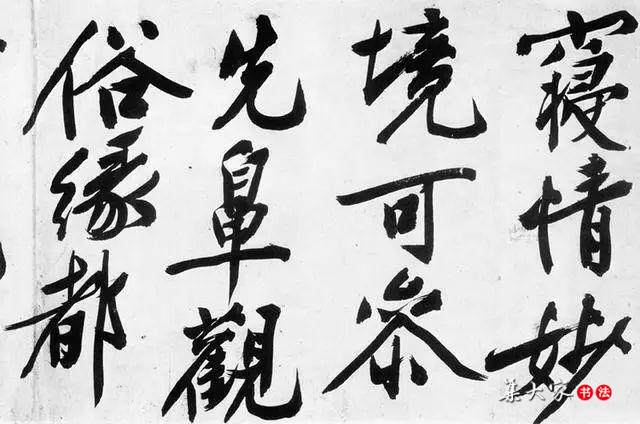 寢情妙
境可參
先鼻觀
俗緣都
集大家书法